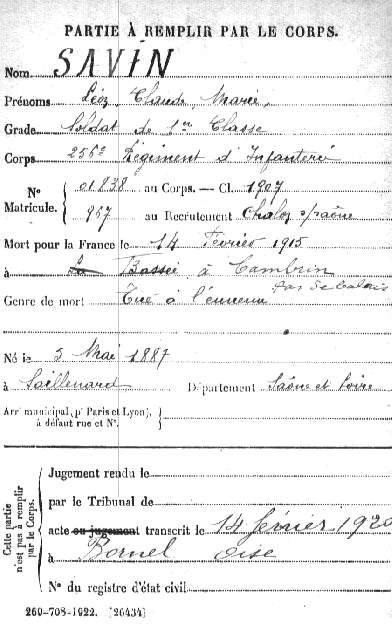 PARTIE À REMPLIR PAR LE CORPS.
Nom SAVIN
Prénoms Claude, Marie,
Grade Soldat de 1re Classe
Corps 256e Régiment d'Infanterie
Nº Matricule. 01838 au Corps. — Cl. 1907
967 au Recrutement Chalon s/saône
Mort pour la France le 14 Février 1915
à La Bassée à Cambrin
Pas de Calais
Genre de mort Tué à l'ennemi
Né le 5 Mai 1887
à Saillenard Département Saône et Loire
Arr' municipal (p' Paris et Lyon),
à défaut rue et Nº.
Cette partie n'est pas à remplir par le Corps.
Jugement rendu le
par le Tribunal de
acte ou jugement transcrit le 14 février 1920
à Bornel Oise
Nº du registre d'état civil
260-708-1922. [26434]